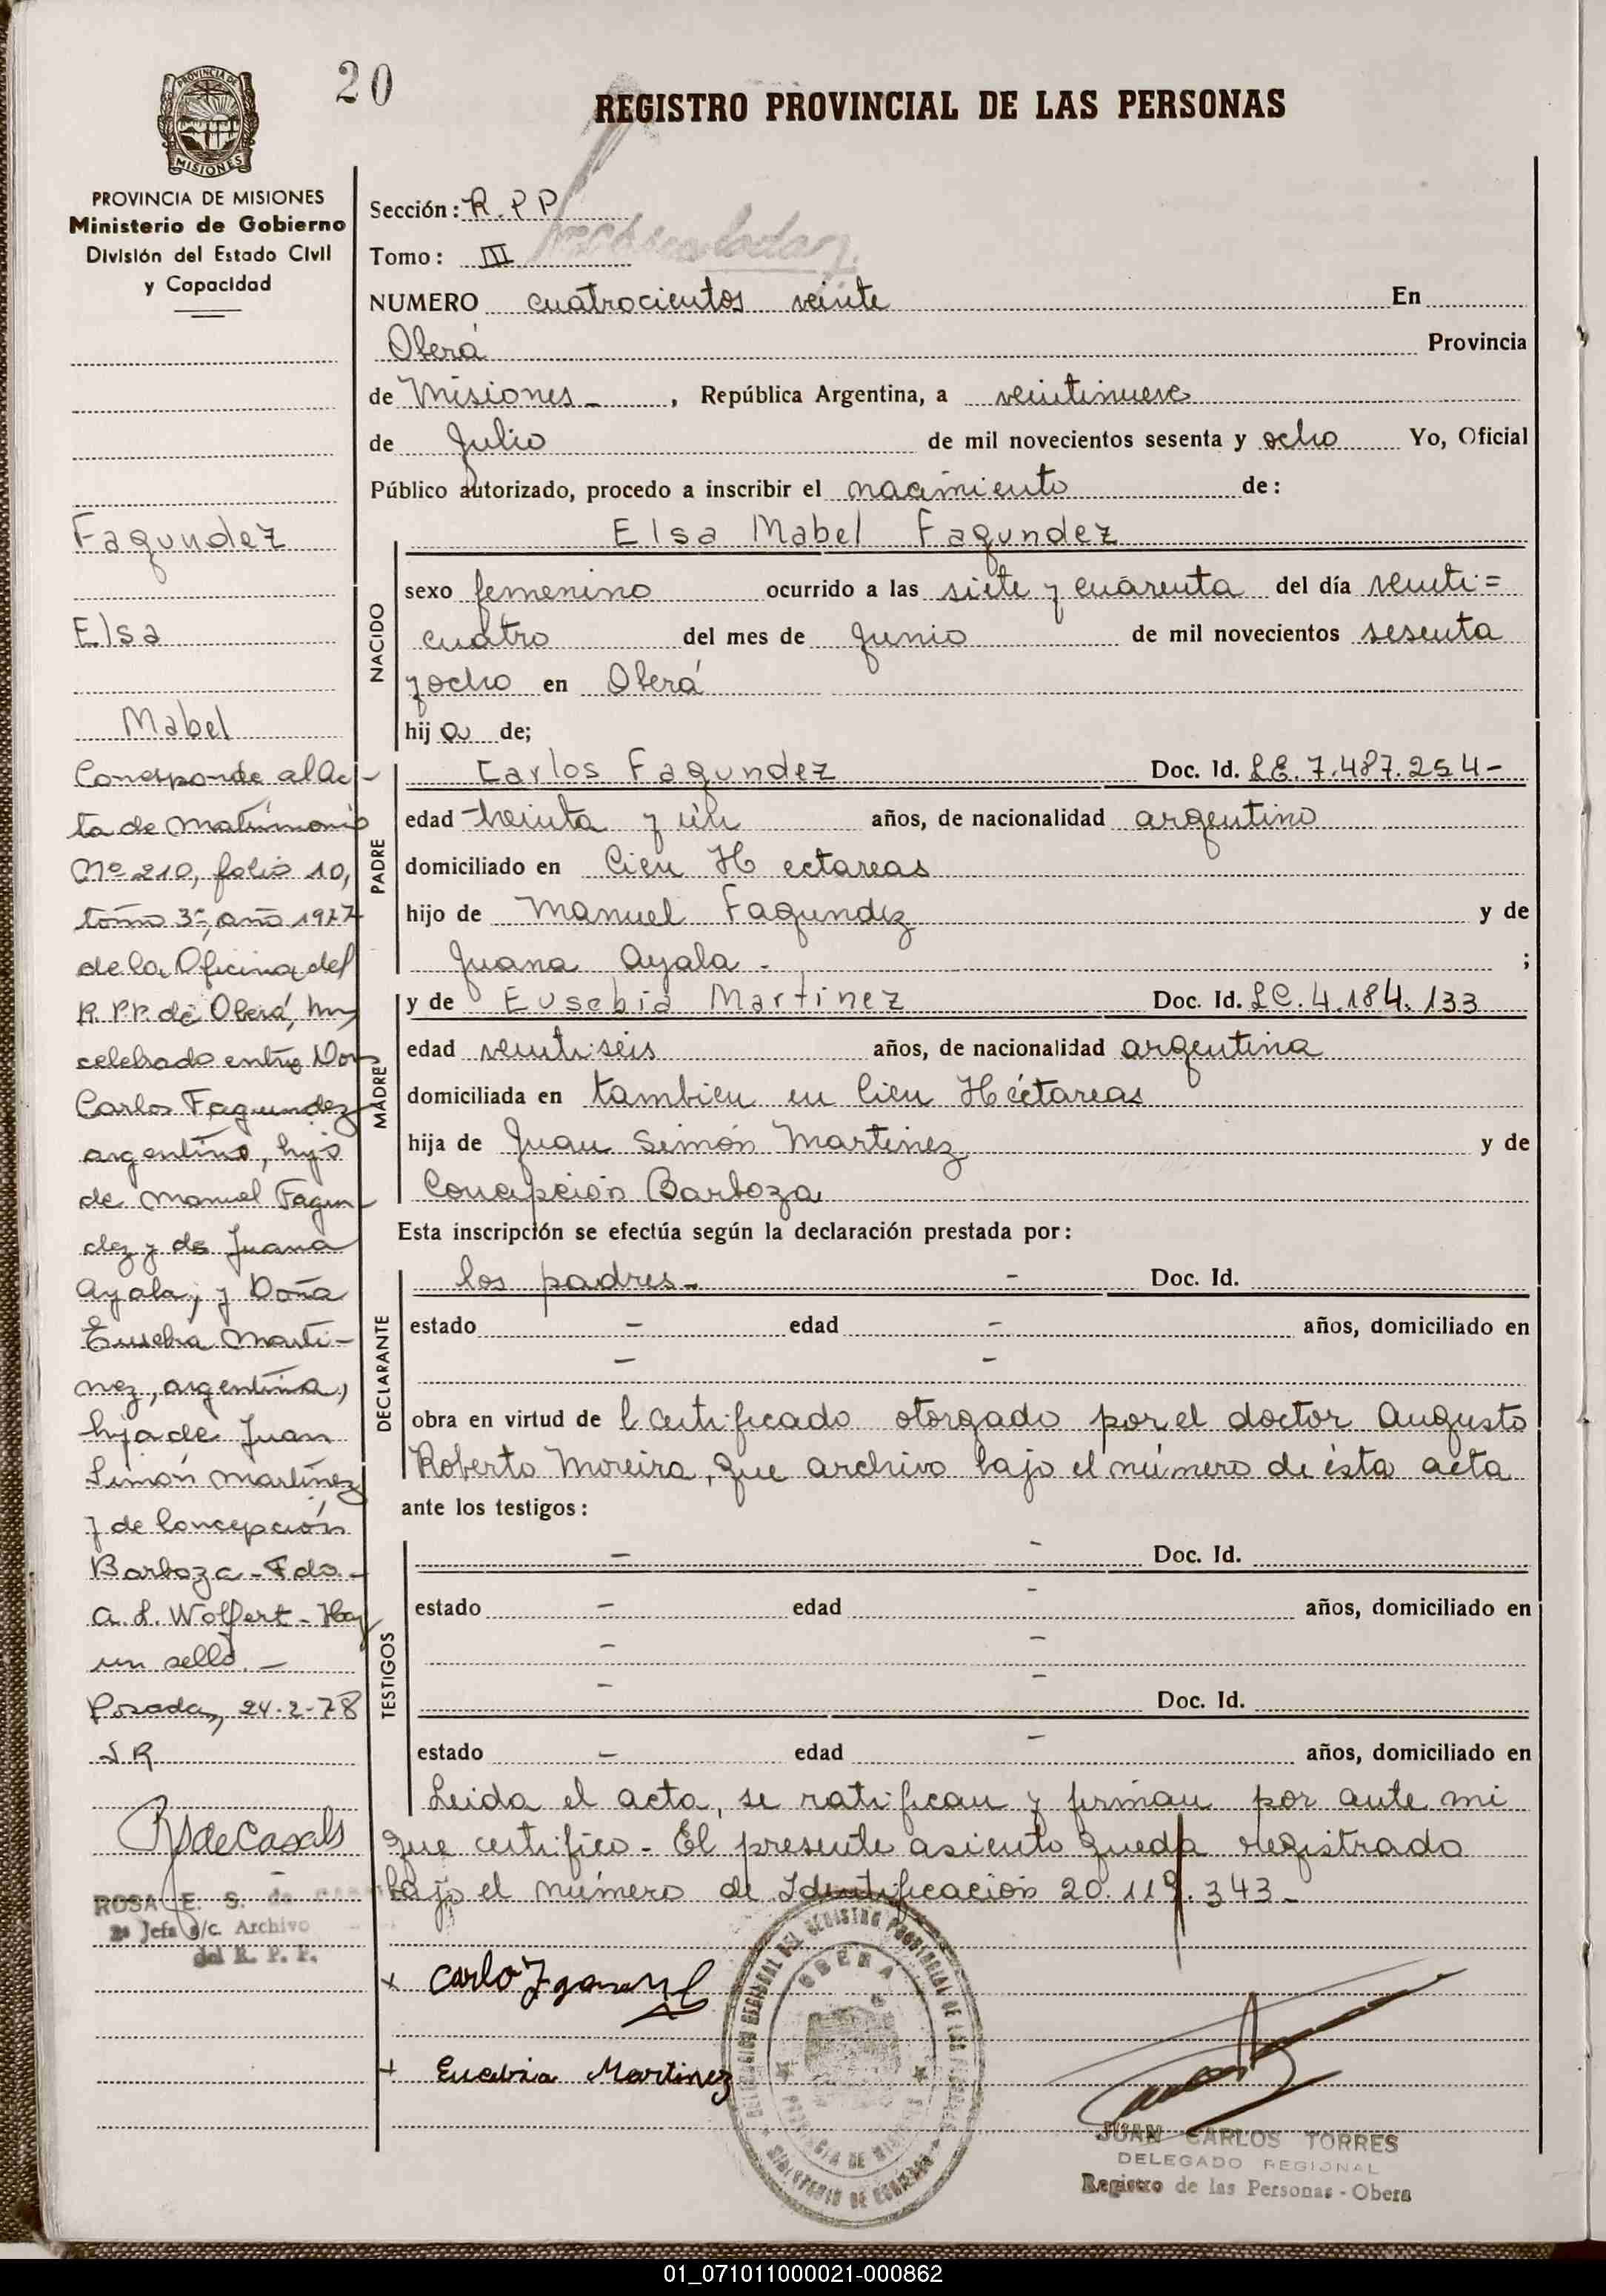 20
REGISTRO PROVINCIAL DE LAS PERSONAS
PROVINCIA DE
MISIONES
PROVINCIA DE MISIONES
Ministerio de Gobierno
División del Estado Civil
y Capacidad
Fagundez
Elsa
Mabel
Corresponde al Ac-
ta de Matrimonio
Nº 210, folio 10,
tomo 3º, año 1977
de la Oficina del
R.P.P. de Oberá, Mnes
celebrado entre Don
Carlos Fagundez
argentino, hijo
de Manuel Fagun-
dez y de Juana
Ayala; y Doña
Eusebia Marti-
nez, argentina,
hija de Juan
Simón Martínez
y de Concepción
Barboza - Fdo. -
A. L. Wolfert - Hay
un sello. -
Posadas, 24-2-78
S R
RSdeCasals
ROSA E. S. de
2º Jefa a/c. Archivo
del R. P. P.
Sección: R.P.P
Tomo: III
NUMERO cuatrocientos veinte En
Oberá Provincia
de Misiones - , República Argentina, a veintinueve
de Julio de mil novecientos sesenta y ocho Yo, Oficial
Público autorizado, procedo a inscribir el nacimiento de:
Elsa Mabel Fagundez
NACIDO
sexo femenino ocurrido a las siete y cuarenta del día veinti=
cuatro del mes de Junio de mil novecientos sesenta
y ocho en Oberá
hija de;
PADRE
Carlos Fagundez Doc. Id. L.E. 7.487.254-
edad treinta y ún años, de nacionalidad argentino
domiciliado en Cien Hectareas
hijo de Manuel Fagundez y de
Juana Ayala - ;
MADRE
y de Eusebia Martinez Doc. Id. L.C. 4.184.133
edad veintiseis años, de nacionalidad argentina
domiciliada en tambien en Cien Héctareas
hija de Juan Simón Martinez y de
Concepción Barboza
Esta inscripción se efectúa según la declaración prestada por:
DECLARANTE
los padres - - Doc. Id.
estado - edad - años, domiciliado en
- -
obra en virtud del certificado otorgado por el doctor Augusto
Roberto Moreira, que archivo bajo el número de ésta acta
ante los testigos:
TESTIGOS
- - Doc. Id.
estado - edad - años, domiciliado en
- -
- - Doc. Id.
estado - edad - años, domiciliado en
Leida el acta, se ratifican y firman por ante mi
que certifico - El presente asiento queda registrado
bajo el número de Identificación 20.119.343 -
Eusebia Martinez
OBERA
JUAN CARLOS TORRES
DELEGADO REGIONAL
Registro de las Personas - Obera
01_071011000021-000862